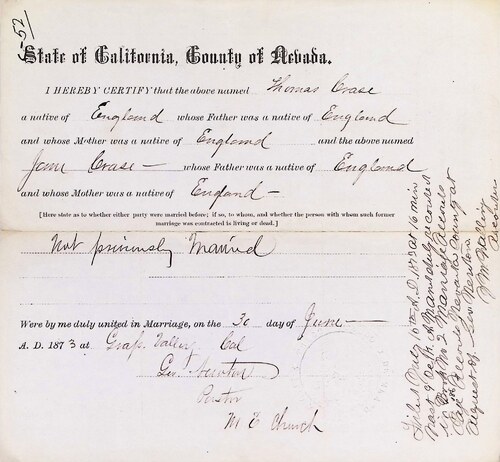 52
State of California, County of Nevada.
I HEREBY CERTIFY that the above named Thomas Crase
a native of England whose Father was a native of England
and whose Mother was a native of England and the above named
Jane Crase — whose Father was a native of England
and whose Mother was a native of England —
[Here state as to whether either party were married before; if so, to whom, and whether the person with whom such former
marriage was contracted is living or dead.]
Not previously Married
Were by me duly united in Marriage, on the 30 day of June —
A. D. 1873 at Grass Valley Cal
Geo Newton
Pastor
M E Church
Filed Aug 6th A.D. 1873 at 16 min
Past 9 Oclk A M and duly recorded
in Book No 2 Marriage Records
Page Records Nevada County at
request of Geo Newton
Wm
Recorder